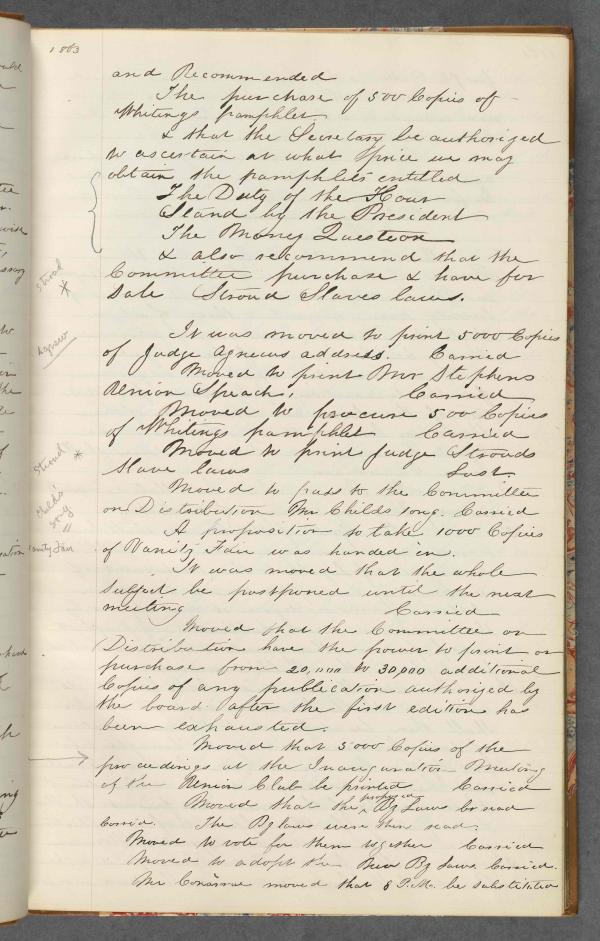 1863
and Recommended
The purchase of 500 Copies of
Whitings pamphlet
& that the Secretary be authorized
to ascertain at what price we may
obtain the pamphlets entitled
The Duty of the Hour
Stand by the President
The Money Question
& also recommend that the
Committee purchase & have for
Sale Stroud Slaves laws.
Stroud
*
It was moved to print 5000 Copies
of Judge Agnews address. Carried
Agnew
Moved to print Mr Stephens
Union Speach. Carried
Moved to procure 500 Copies
of Whitings pamphlet Carried
Moved to print Judge Strouds
Slave laws Lost
Stroud
*
Moved to pass to the Committee
on Distribution Mr Childs song. Carried
Childs
song
A proposition to take 1000 Copies
of Vanity Fair was handed in.
Vanity Fair
It was moved that the whole
subject be postponed until the next
meeting Carried
Moved that the Committee on
Distribution have the power to print or
purchase from 20,000 to 30,000 additional
Copies of any publication authorized by
the board after the first edition has
been exhausted.
Moved that 5000 Copies of the
proceedings at the Inauguration Meeting
of the Union Club be printed Carried
Moved that the proposed By Laws be read
Carried. The By laws were then read.
Moved to vote for them together Carried
Moved to adopt the New By Laws Carried.
Mr moved that 8 P.M. be substituted